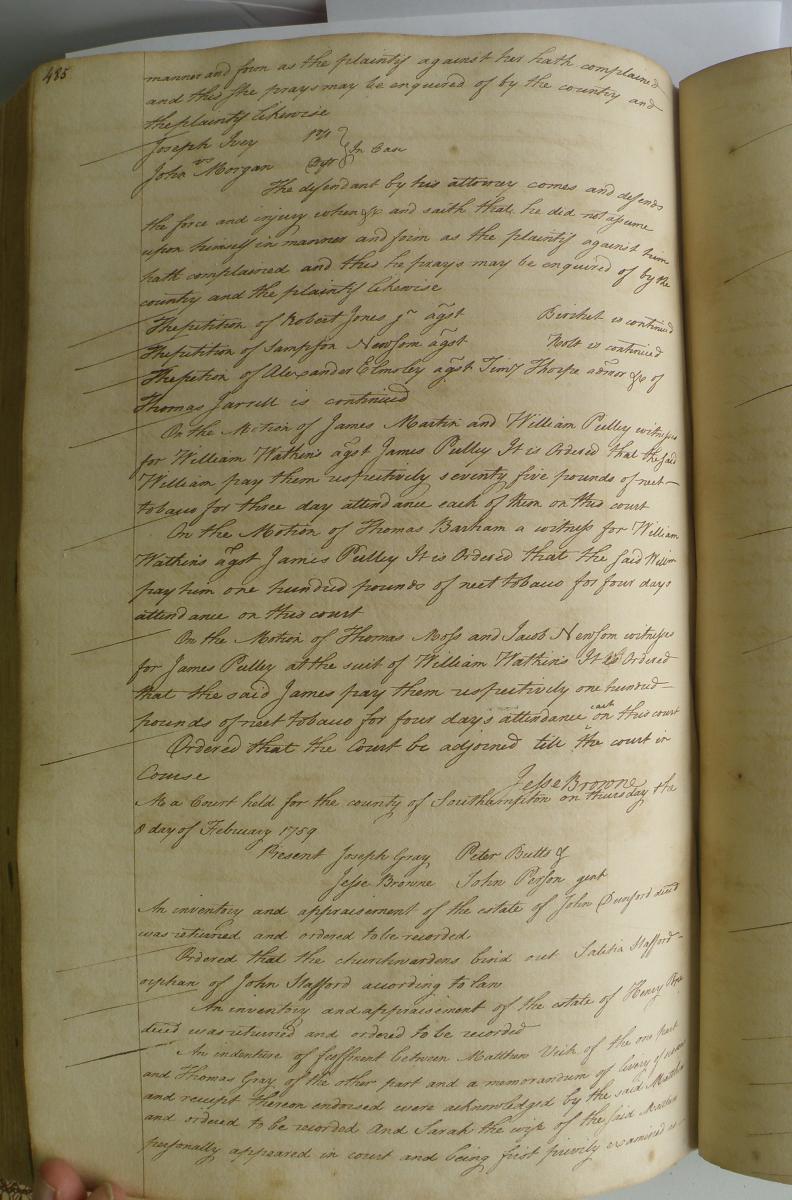 485
manner and form as the plaintif against her hath complained
and this she prays may be enquired of by the country and
the plaintif likewise
Joseph Ivey plt
vs In Case
John Morgan Deft
The defendant by his attorney comes and defends
the force and injury when &c and saith that he did not assume
upon himself in manner and form as the plaintif against him
hath complained and this he prays may be enquired of by the
country and the plaintif likewise
The petition of Robert Jones jr agst Birchet is continued
The petition of Sampson Newsom agst Nott is continued
The petion of Alexander Elmsley agst Timy Thorpe admor &c of
Thomas Jarrell is continued
On the Motion of James Martin and William Pulley witnesses
for William Watkins agst James Pulley It is Ordered that the said
William pay them respectively seventy five pounds of neet
tobacco for three day attendance each of them on this court
On the Motion of Thomas Barham a witness for William
Watkins agst James Pulley It is Ordered that the said William
pay him one hundred pounds of neet tobacco for four days
attendance on this court
On the Motion of Thomas Moss and Jacob Newsom witnesses
for James Pulley at the suit of William Watkins It is Ordered
that the said James pay them respectively one hundred
pounds of neet tobacco for four days attendance each on this court
Ordered that the Court be adjoined till the court in
Course
Jesse Browne
At a Court held for the county of Southampton on thursday the
8 day of February 1759
Present Joseph Gray Peter Butts &
Jesse Browne John Person gent
An inventory and appraisement of the estate of John Dunford deced
was returned and ordered to be recorded
Ordered that the churchwardens bind out Salitia Stafford
orphan of John Stafford according to law
An inventory and appraisement of the estate of Henry
deced was returned and ordered to be recorded
An indenture of feffment between Matthew Vick of the one part
and Thomas Gray of the other part and a memorandum of livery of seisin
and receipt thereon endorsed were acknowledged by the said Matthew
and ordered to be recorded And Sarah the wife of the said Matthew
personally appeared in court and being first privily examined